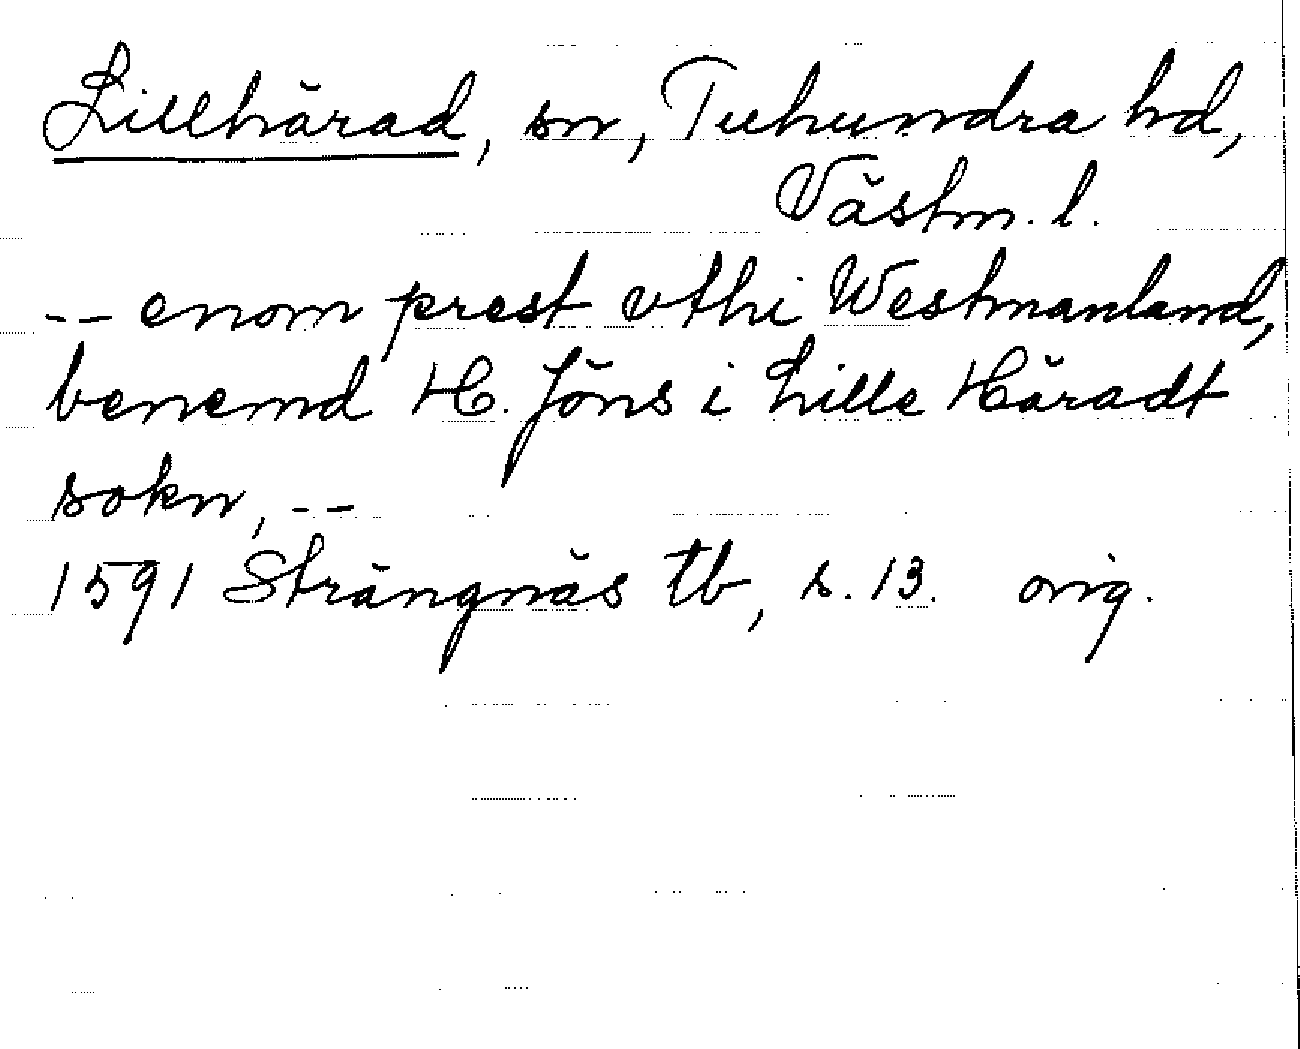 Lillhärad, sn, Tuhundra hd,
Västm. l.
-- enom prest vthi Westmanland,
benemd H. Jöns i Lille Häradt
sokn, --
1591 Strängnäs tb, s. 13. orig.